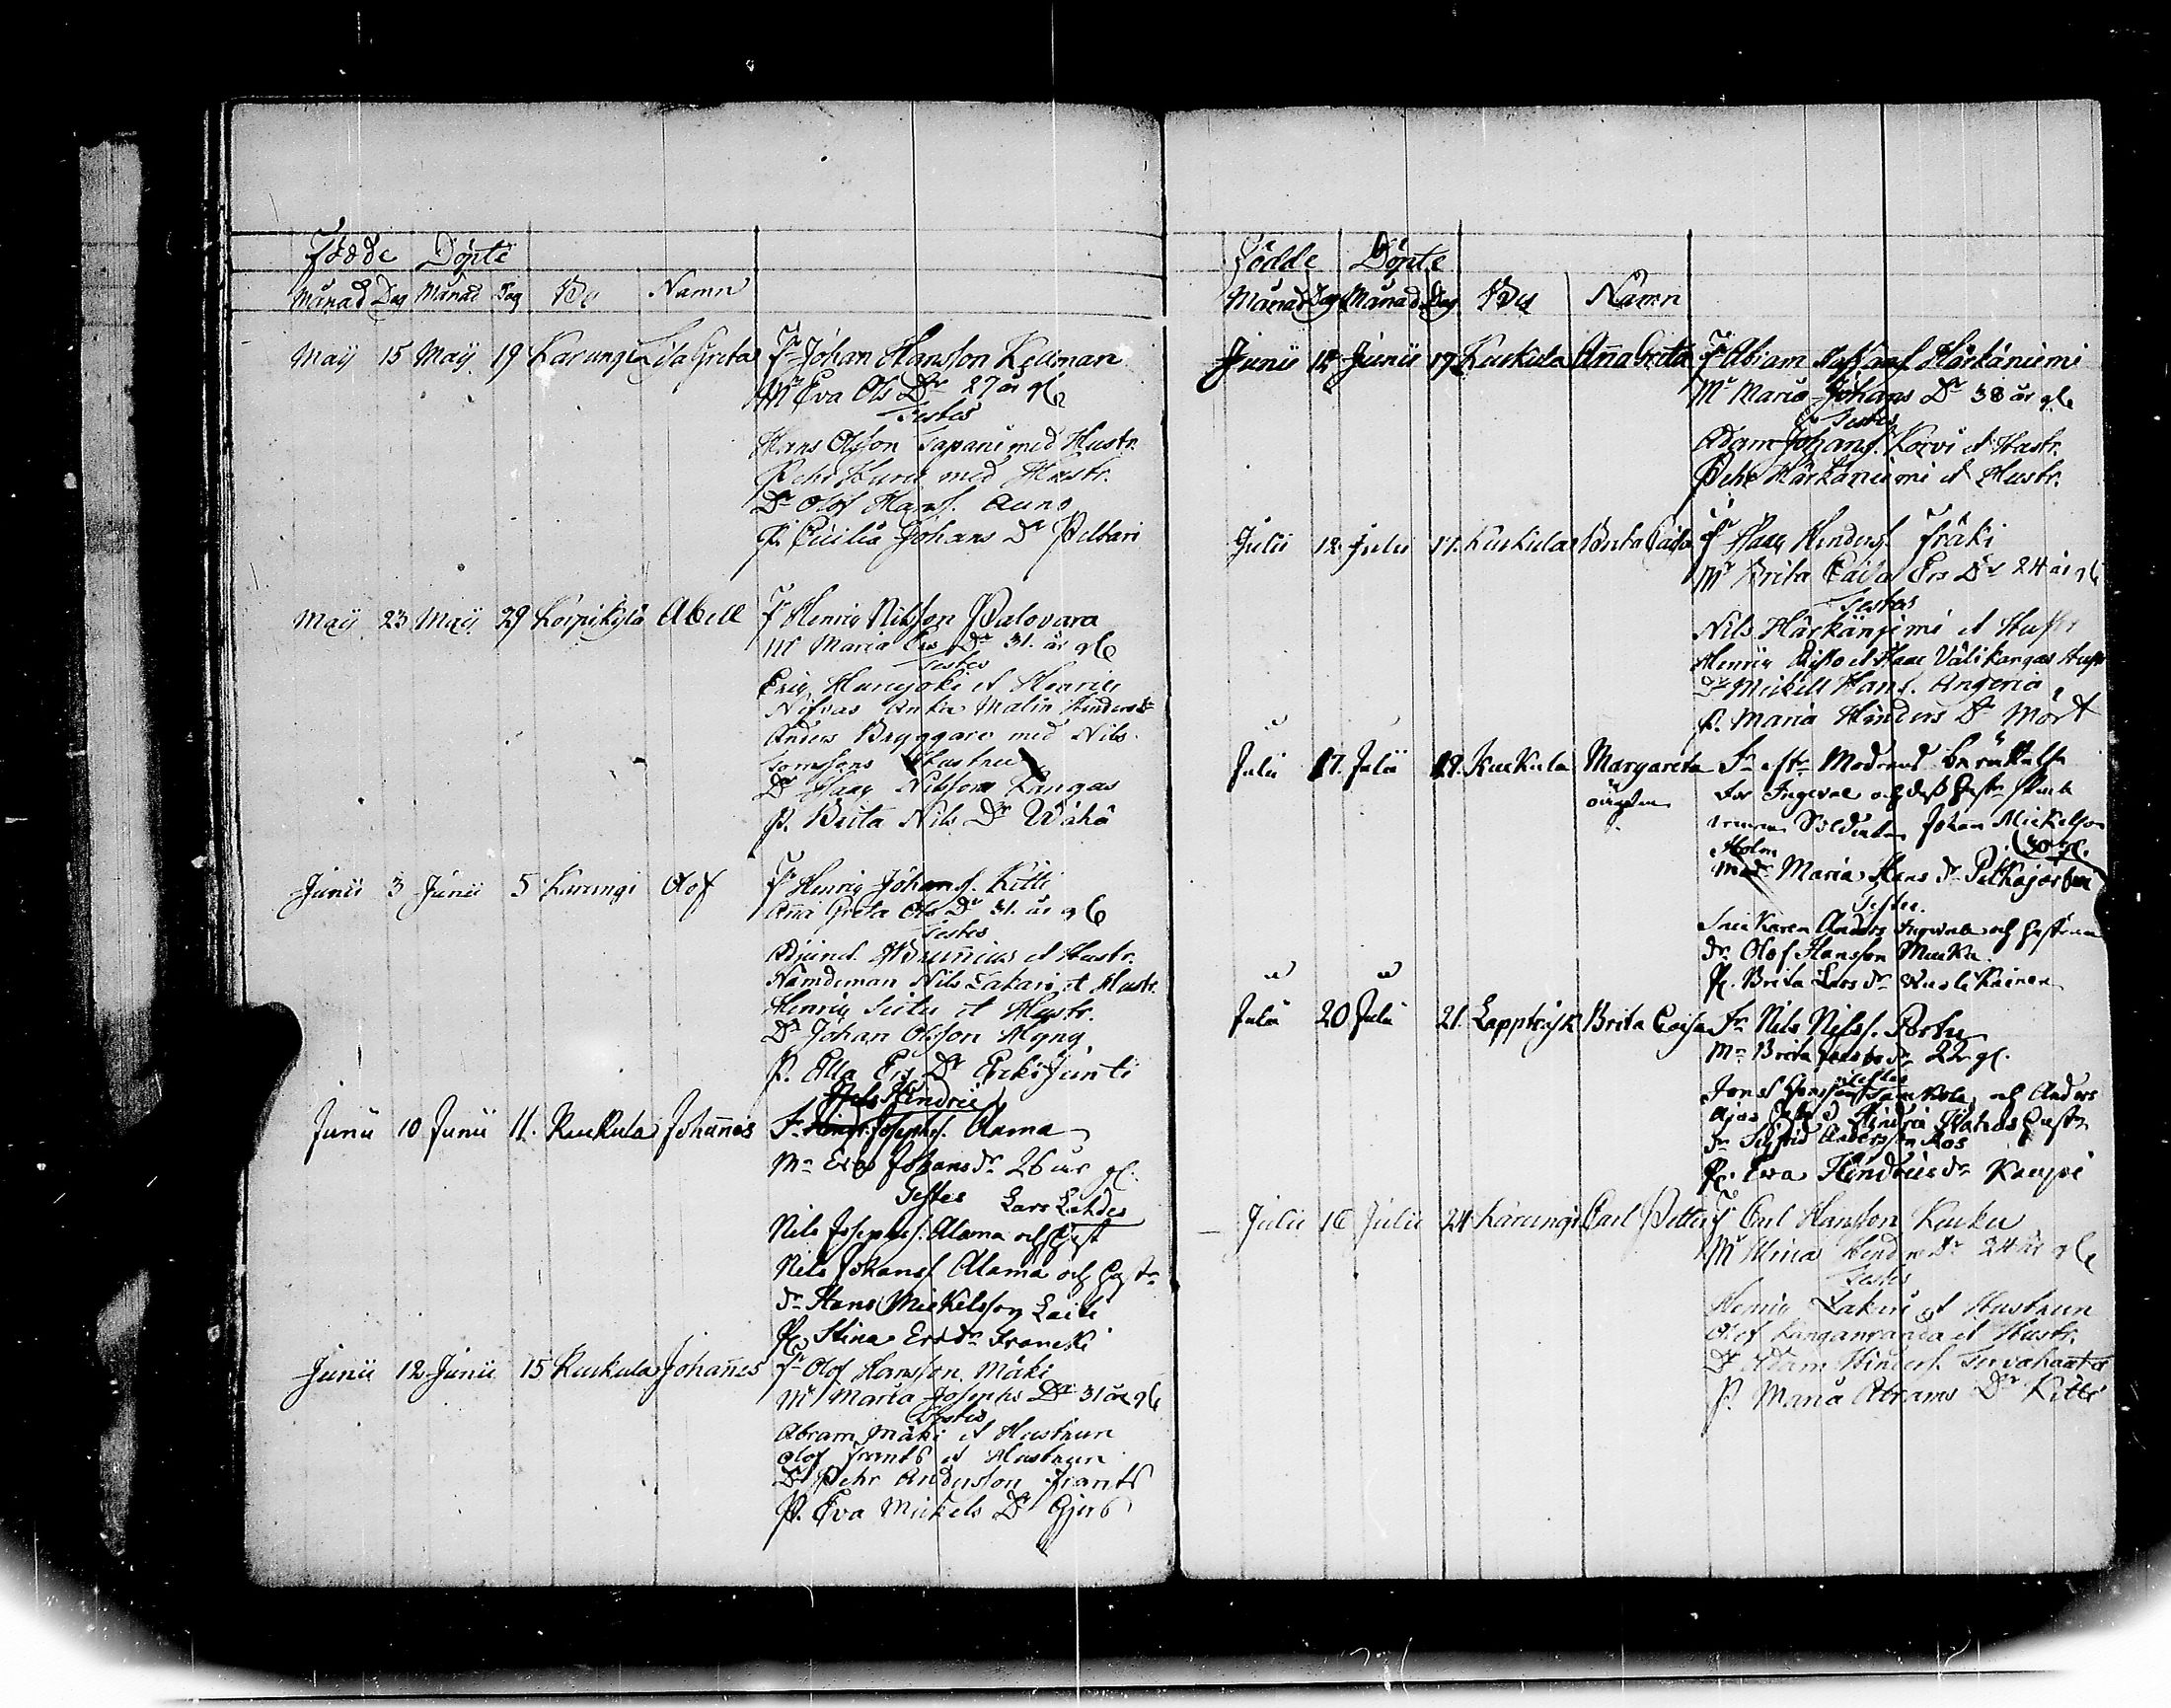 Födde Döpte
Månad Dag Månad Dag By Namn
May 15 May 19 Karungi Lisa Greta Fr Johan Hansson Kellman
Mr Eva Ols Dr 27 år gl
Testes
Hans Olsson Tapani med Hustr.
Pehr Kuru med Hustr.
Dr Olof Hanss. Auno
P. Cicilia Johans Dr Peltari
May 23 May 29 Korpikylä Abell Fr Henric Nilsson Palovara
Mr Maria Ers Dr 31. år gl
Testes
Eric Hurujoki et Henric
Nifvas Enka Malin Hinders Dr
Anders Bryggare med Nils
Tomssons Hustru
Dr Isaac Nilsson Kangas
P. Brita Nils Dr Wähä
Junii 3 Junii 5 Karungi Olof Fr Henric Johanss. Kitti
Anna Greta Ols Dr 31. år gl
Testes
Adjunct. Brunnius et Hustr.
Nämdeman Nils Lakari et Hustr.
Henric et Hustr.
Dr Johan Olsson Hyng
P. Ella Ers Dr Erkijunti
Nils Hindric
Junii 10 Junii 11. Kuckula Johannes Fr Josephss. Alama
Mr Eva Johans dr 26 år gl.
Testes Lars Lahdes
Nils Josephss. Alama och Hust
Nils Johanss Alama och Hustr
Dr Hans Mickelsson Laiti
P. Stina Ersdr Franski
Junii 12 Junii 15 Kuckula Johannes Fr Olof Hansson Mäki
Mr Maria Josephs Dr 31 år gl
Testes
Abram Mäki et Hustrun
Olof Frants et Hustrun
Dr Pehr Andersson Frants
P. Eva Mickels Dr Gjers
Födde Döpte
Månad Dag Månad Dag By Namn
Junii 12 Junii 17 Kuckula Anna Greta Fr Abram Härkäniemi
Mr Maria Johans Dr 38 år gl
Testes
Adam Johans. Korvi et Hustr.
Pehr Härkäniemi et Hustr.
Julii 12 Julii 17. Kuckula Brita Caisa Fr Isaac Hinderss. Fräki
Mr Brita Caisa Ers Dr 24 år gl
Testes
Nils Härkäniemi et Hustr
Henric et Isaac Välikangas Hustr
Dr Mickell Hans. Angeria
P. Maria Hinders Dr Mört
Julii 17. Julii 19. Kuckula Margareta Fr eftr Modrens berättelse
oägta Ingeval och
Soldaten Johan Mickelsson
Holm (30 gl.
Modr Maria Hans dr Pelkajerfvi
Testes.
Snickaren Anders Ingeval och Hustrun
Dr Olof Hansson Mucka.
P. Brita Lars dr
Julii 20 Julii 21. Lappträsk Brita Caisa Fr Nils Nilss. Portu
Mr Brita dr 22 gl.
Testes
Jonas och Anders
Ajos Hindric Hustr
Dr Sigfrid Andersson Kos
P. Eva Hindricsdr Kauppi
Julii 16 Julii 24 Karungi Carl Petter Fr Carl Hansson Kucku
Mr Stina Hendr Dr 24 år gl
Testes
Henric Lakari et Hustrun
Olof Kanganranda et Hustr.
Dr Adam Hinders. Tervahauta
P. Maria Abrams Dr Kitti